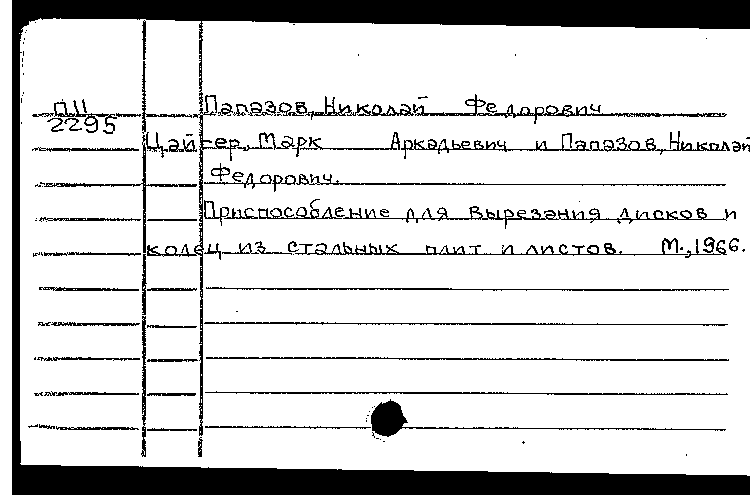 П11
2295
Папазов, Николай Федорович
Цайгер, Марк Аркадьевич и Папазов, Николай
Федорович.
Приспособление для вырезания дисков и
колец из стальных плит и листов. М., 1966.